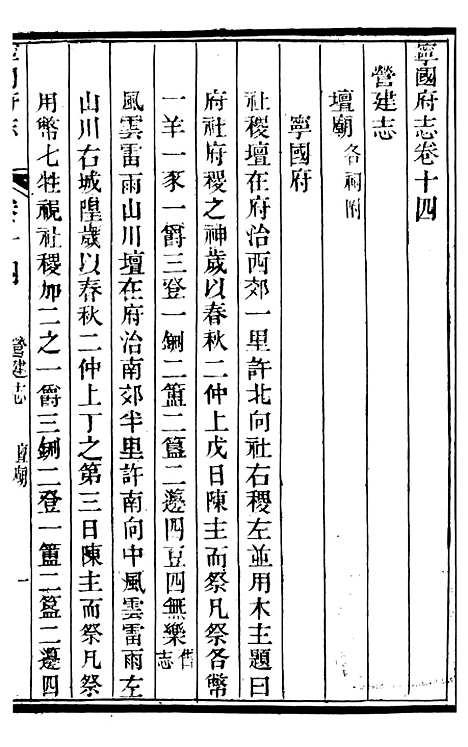 寧國府志卷十四
營建志
壇廟各祠附
寧國府
社稷壇在府治西郊一里許北向社右稷左並用木主題曰
府社府稷之神歲以春秋二仲上戊日陳主而祭凡祭各幣
一羊一豕一爵三登一鉶二簠二簋二籩四豆四無樂舊志
風雲雷雨山川壇在府治南郊半里許南向中風雲雷雨左
山川右城隍歲以春秋二仲上丁之第三日陳主而祭凡祭
用幣七牲視社稷加二之一爵三鉶二登一簠二簋二籩四
寧國府志 卷十四 營建志 壇廟 一